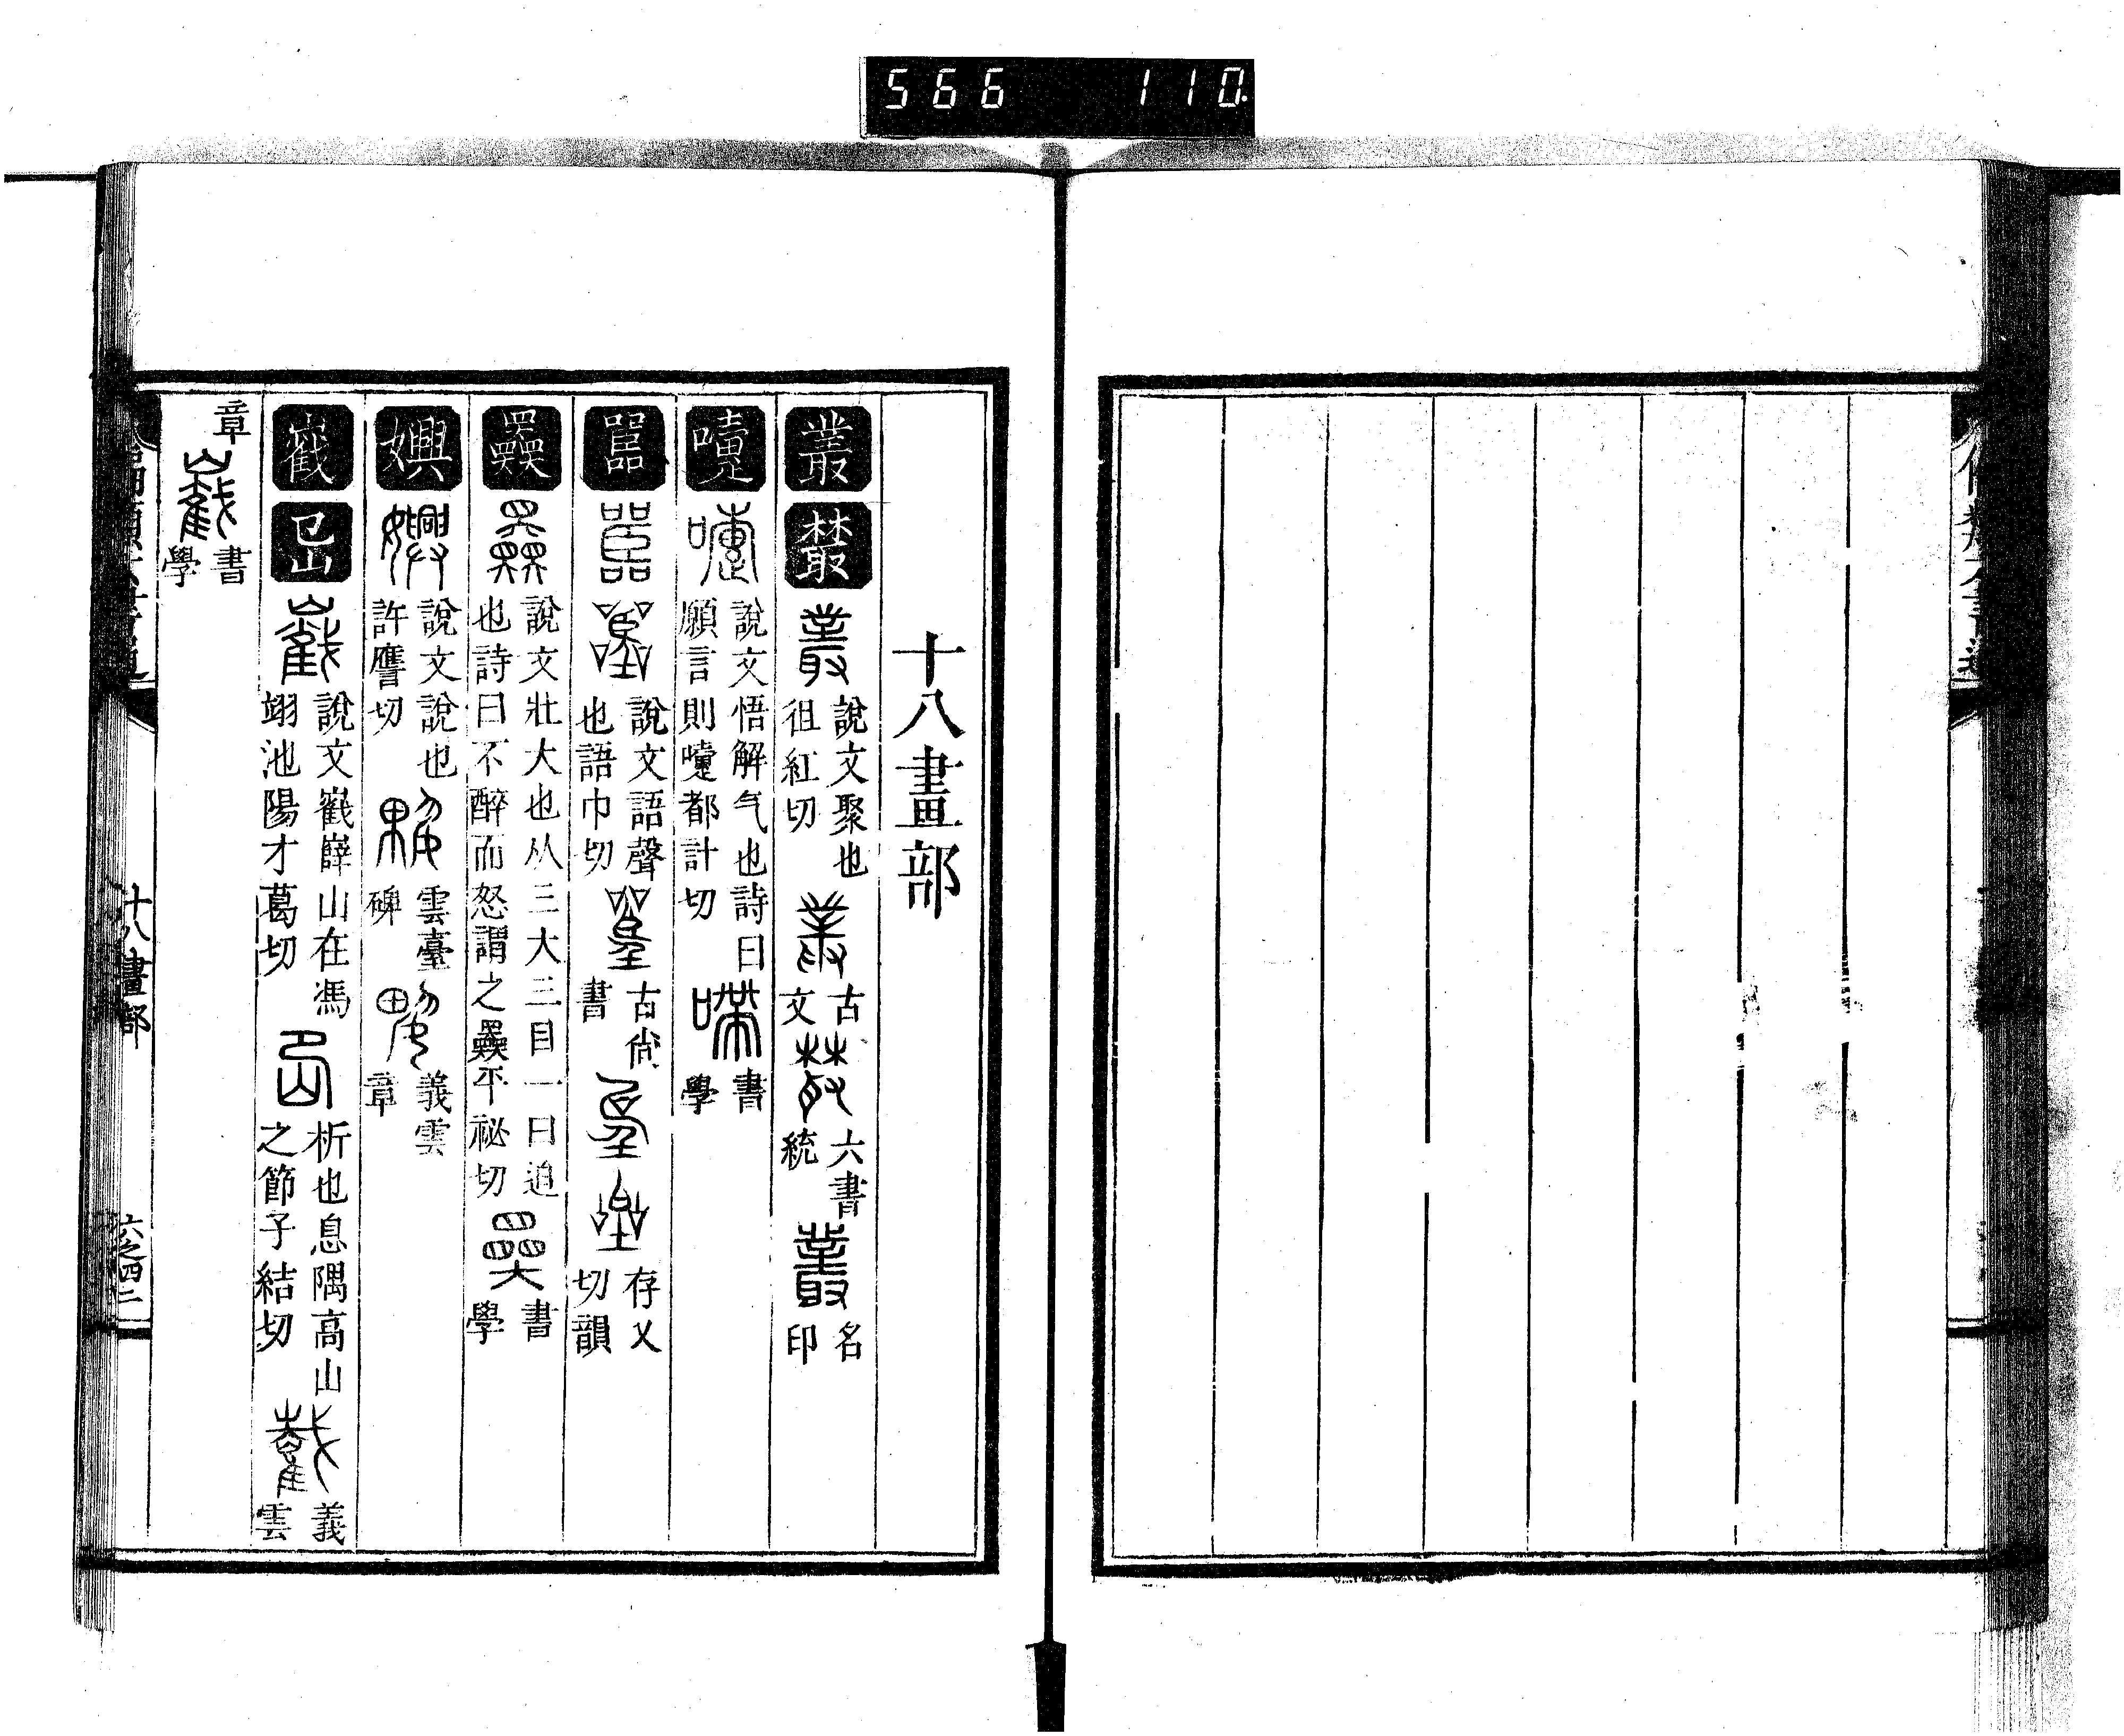 566 110
十八畫部
叢 藂 說文聚也徂紅切 古文 六書統 名印
嚏 說文悟解气也詩曰願言則嚏都計切 書學
嚚 說文語聲也語巾切 古尚書 存乂切韻
奰 說文壯大也从三大三目一曰迫也詩曰不醉而怒謂之奰平祕切 書學
嬹 說文說也許譍切 雲臺碑 義雲章
巀 㠱 說文巀嶭山在馮翊池陽才葛切 析也息隅高山之節子結切 義雲
章 書學
十八畫部
六之四二